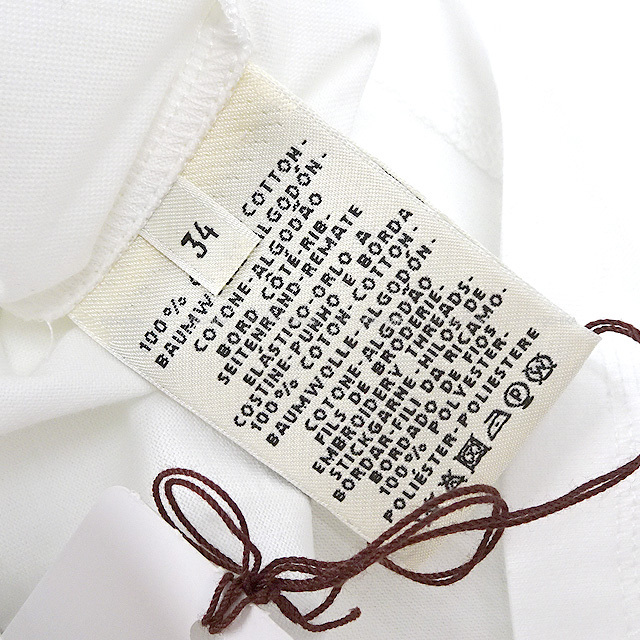 34
100% C COTTON-
BAUMW ALGODÓN-
COTONE-ALGODÃO
BORD CÔTÉ-RIB-
SEITENRAND-REMATE
ELÁSTICO-OFLO A
COSTINE-PUNHO I BORDA
100% COTON-COTTON-
BAUMWOLLE-ALGODÓN-
COTONE-ALGODÃO
FILS DE BRODERIE-
EMBROIDERY THREADS-
STICKGARNE-HILOS DE
BORDAR-FILI DA RICAMO-
BORDADO DE FIOS
100% POLYESTER-
POLIÉSTER-POLIESTERE